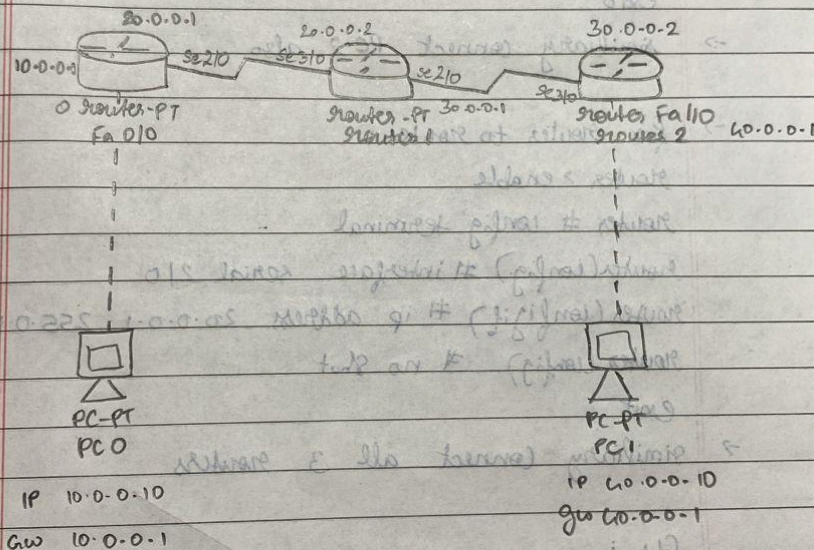 20.0.0.1
20.0.0.2
30.0.0.2
10.0.0.1
se2/0
se3/0
se2/0
30.0.0.1
se3/0
0 router-PT
Fa 0/0
router-PT
router 1
router Fa 1/0
router 2
40.0.0.1
PC-PT
PC0
PC-PT
PC1
IP 10.0.0.10
GW 10.0.0.1
IP 40.0.0.10
gw 40.0.0.1